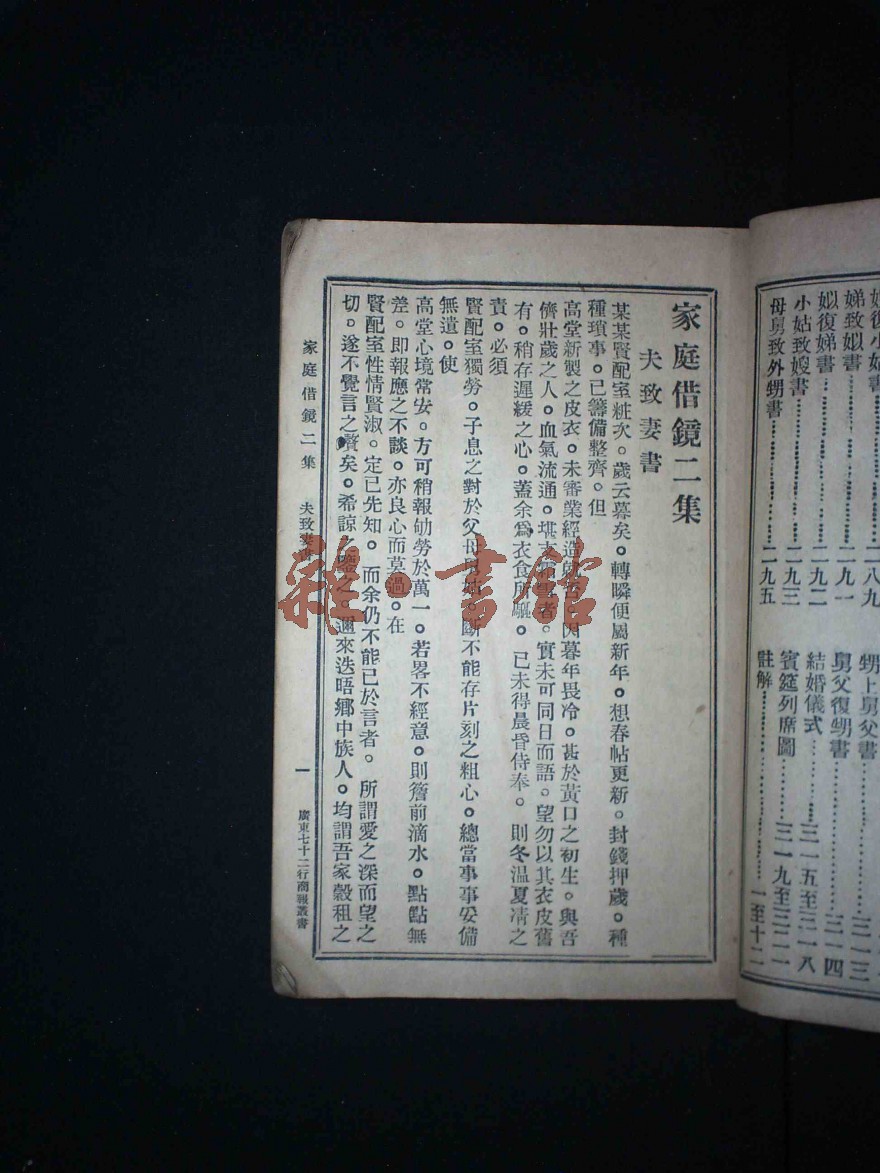 娣致姒書……………二八九
姒復娣書……………一九一
小姑致嫂書…………二九二
母舅致外甥書………二九三
二九五
甥上舅父書…………三一三
舅父復甥書…………三一四
結婚儀式……三一五至三一八
賓筵列席圖……三一九至三二一
註解……………一至十二
家庭借鏡二集
夫致妻書
某某賢配室粧次。歲云暮矣。轉瞬便屬新年。想春帖更新。封錢押歲。種
種瑣事。已籌備整齊。但
高堂新製之皮衣。未審業經造與否。因暮年畏冷。甚於黃口之初生。與吾
儕壯歲之人。血氣流通。堪支霜雪者。實未可同日而語。望勿以其衣皮舊
有。稍存遲緩之心。蓋余爲衣食所驅。已未得晨昏侍奉。則冬溫夏凊之
責。必須
賢配室獨勞。子息之對於父母舅姑。斷不能存片刻之粗心。總當事事妥備
無遺。使
高堂心境常安。方可稍報劬勞於萬一。若畧不經意。則簷前滴水。點點無
差。即報應之不談。亦良心而莫過。在
賢配室性情賢淑。定已先知。而余仍不能已於言者。所謂愛之深而望之
切。遂不覺言之贅矣。希諒之鑒之。邇來迭晤鄉中族人。均謂吾家穀租之
家庭借鏡二集　夫致妻書　一　廣東七十二行商報叢書
雜·書館